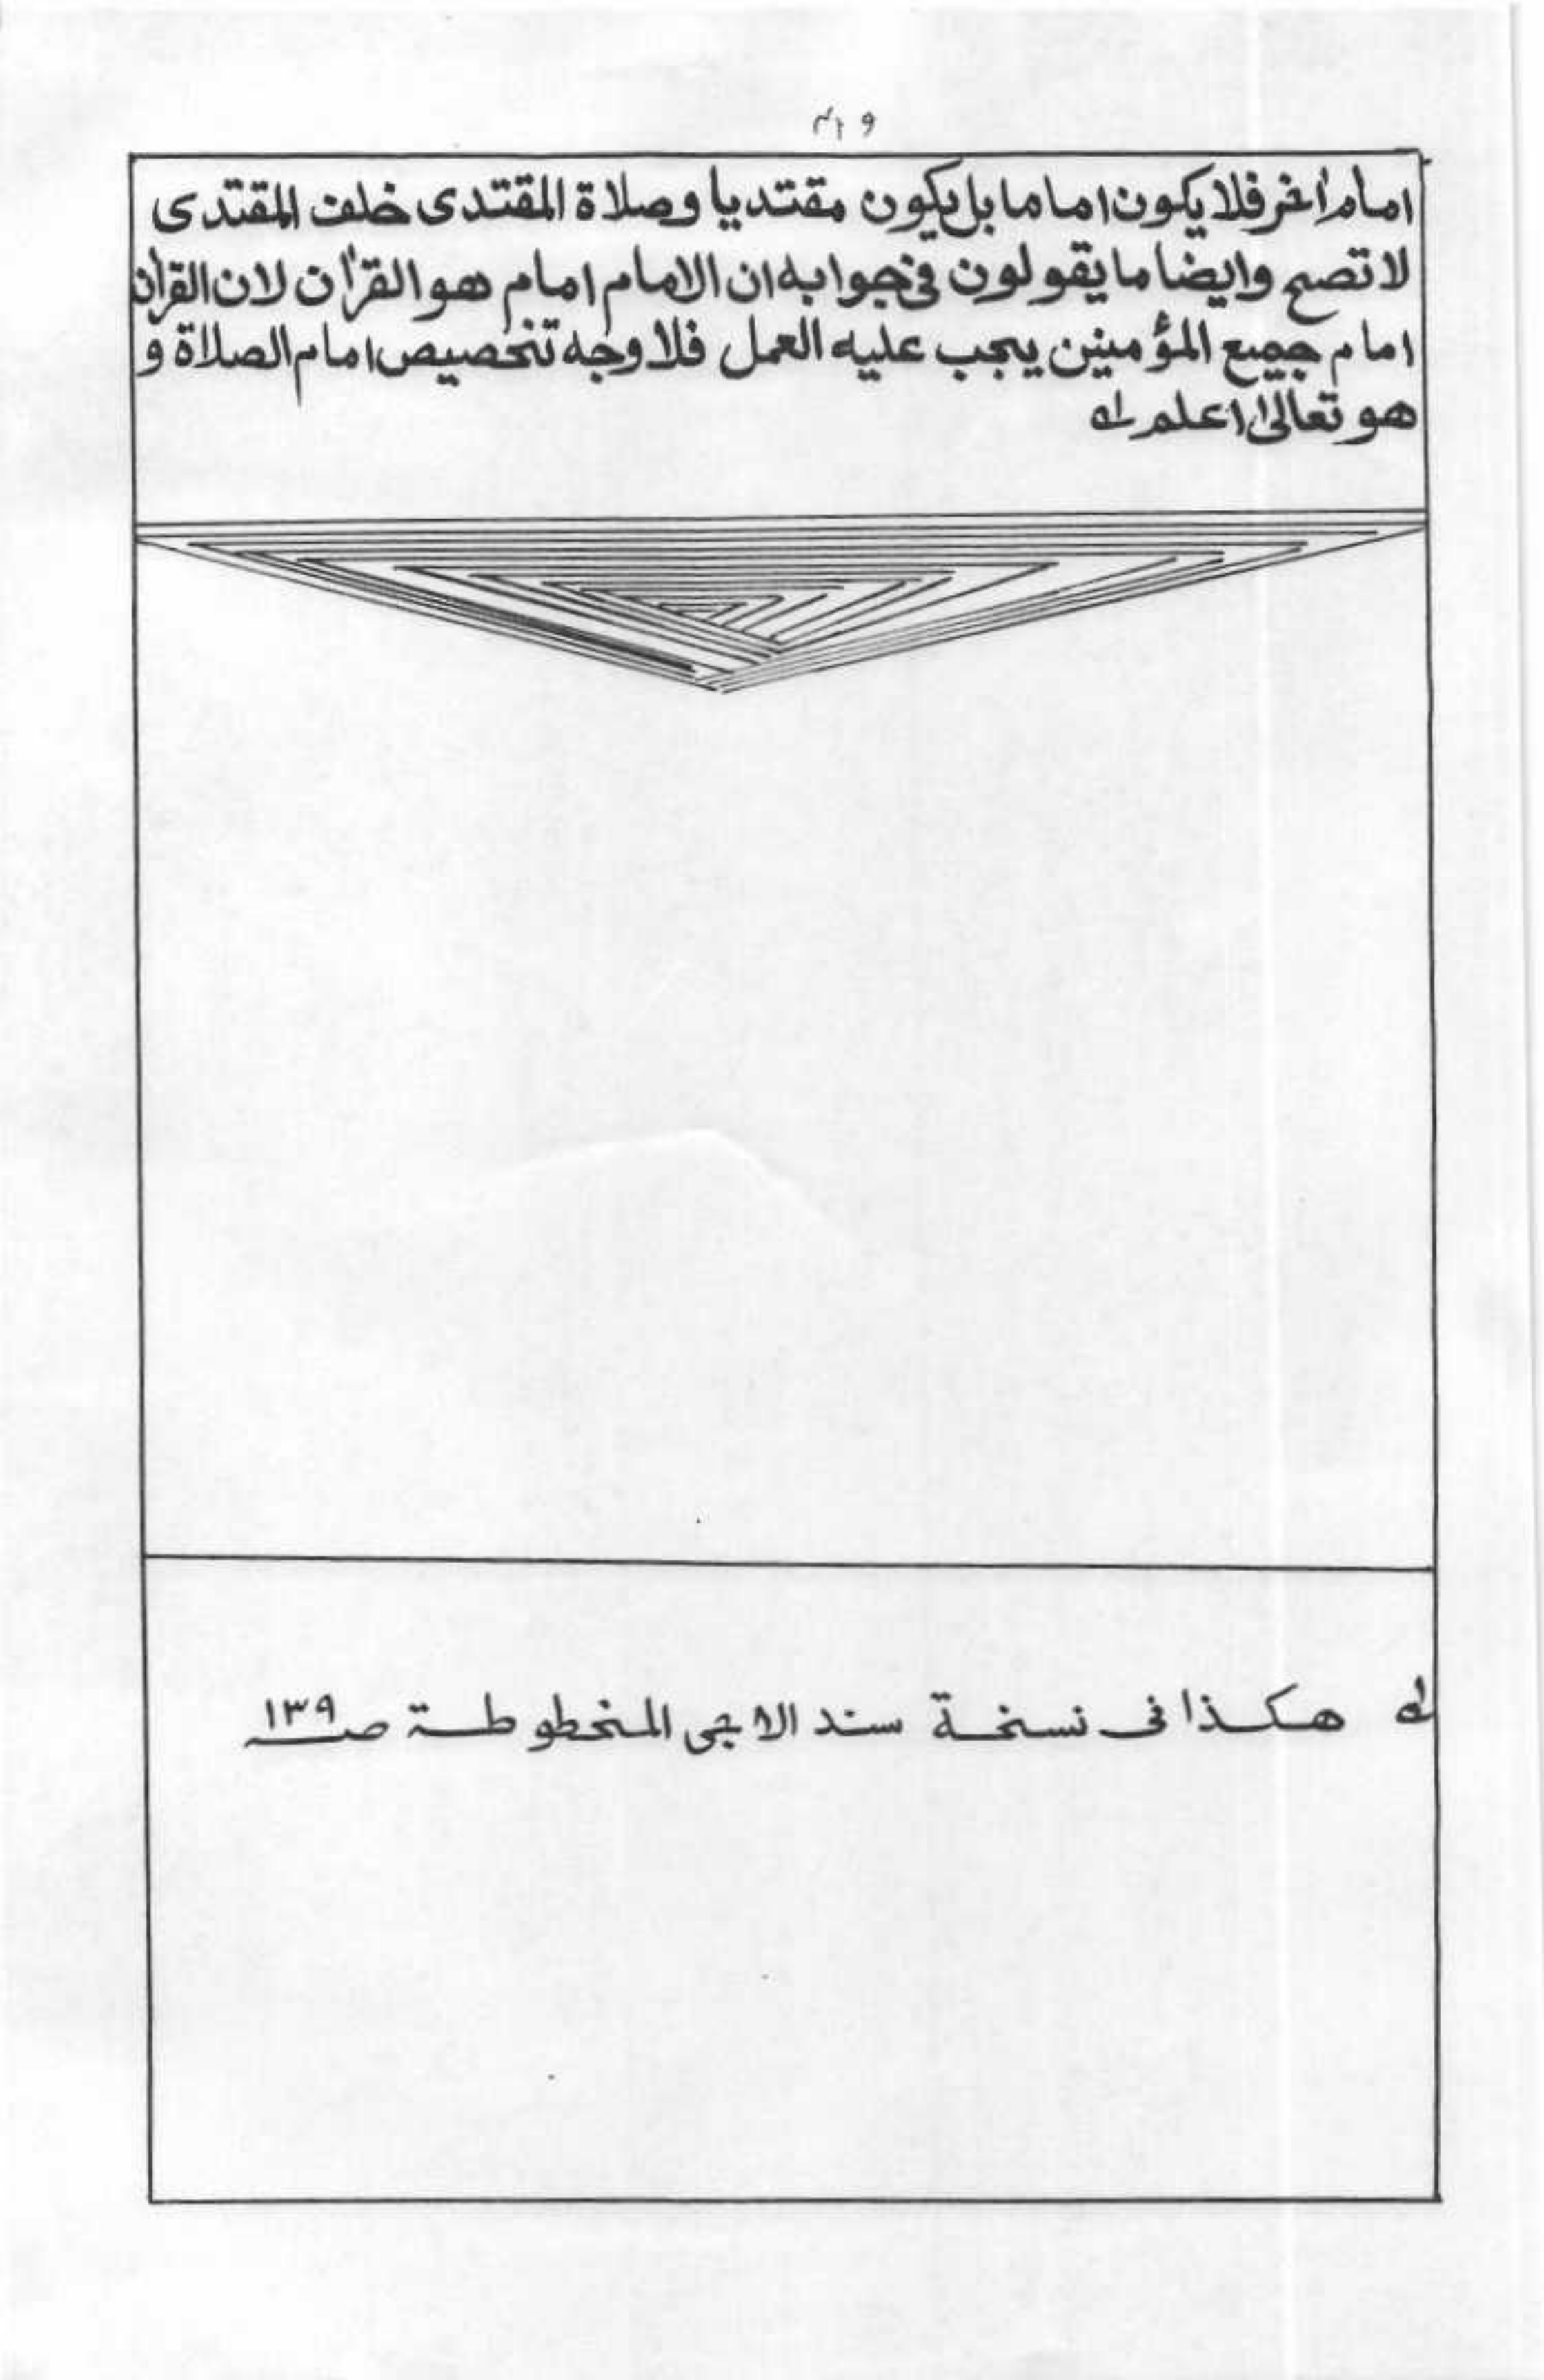 ۴۱۹
امام اٰخر فلا يكون اماما بل يكون مقتديا وصلاة المقتدى خلف المقتدى
لا تصح وايضا ما يقولون فى جوابه ان الامام امام هو القراٰن لان القراٰن
امام جميع المؤمنين يجب عليه العمل فلا وجه تخصيص امام الصلاة و
هو تعالىٰ اعلم لـه
لـه هكذا فى نسخة سند الاجى المخطوطة صـ١٣٩